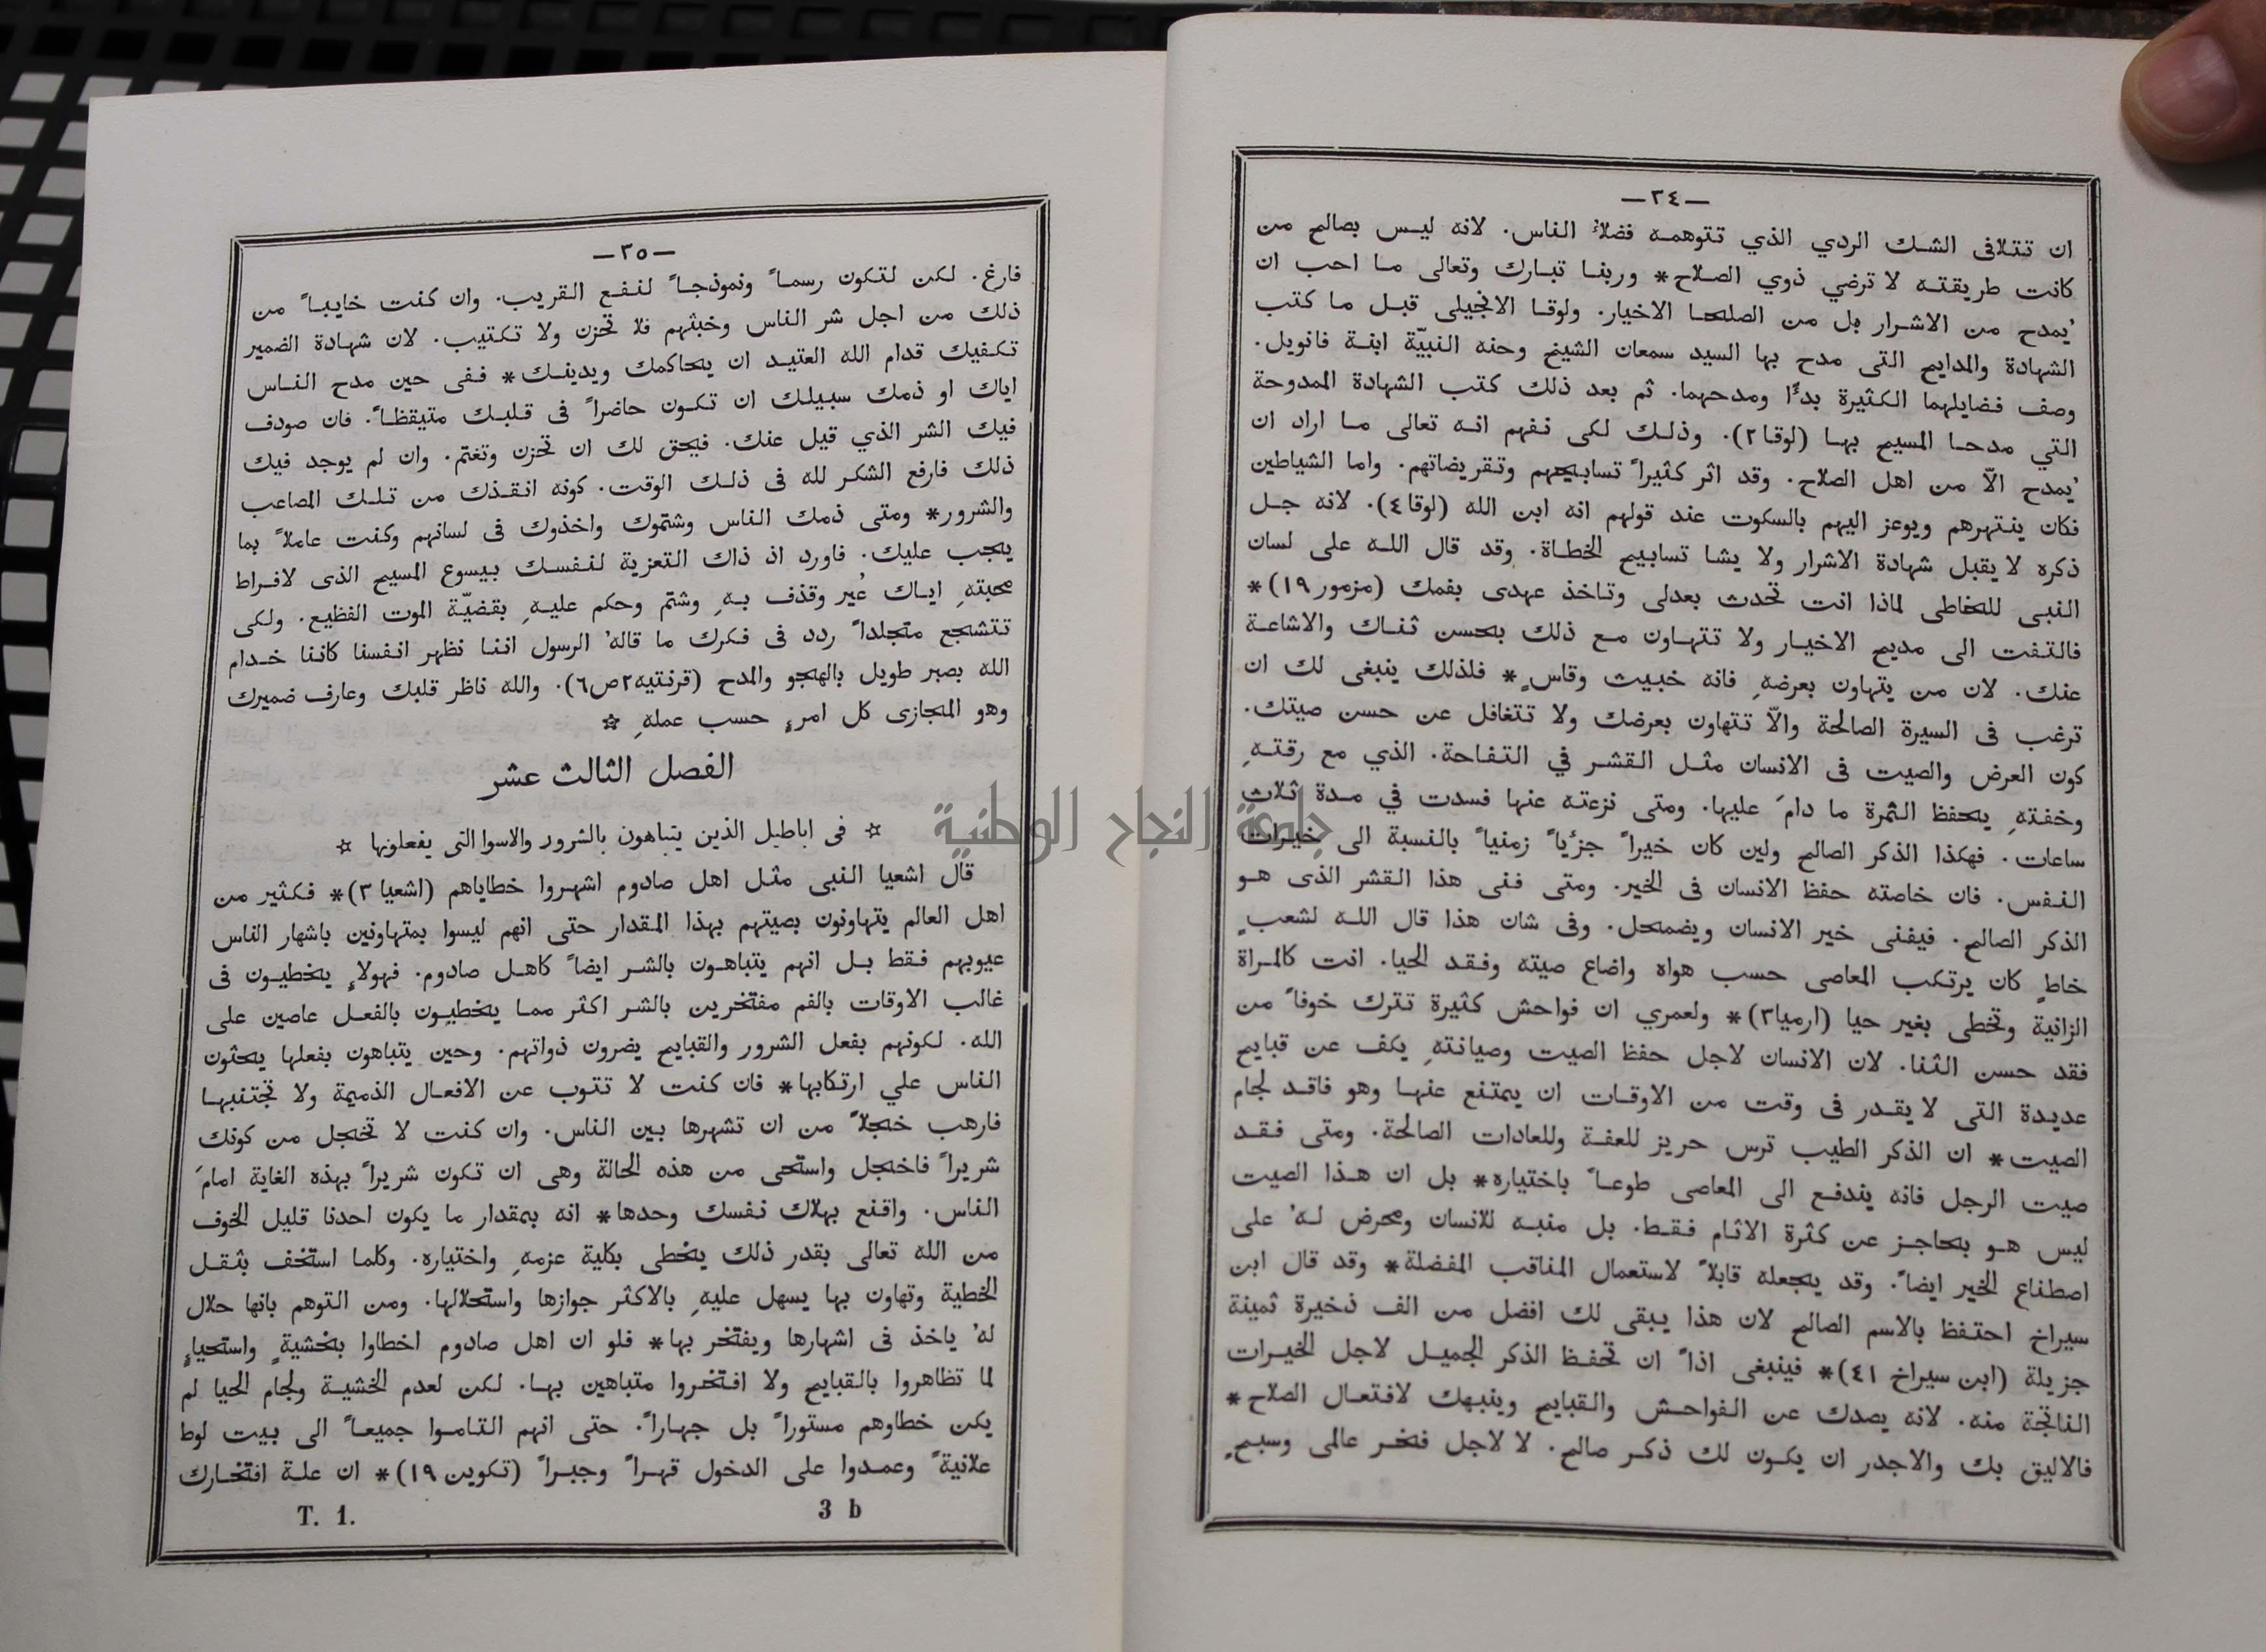 —٣٤—
ان تتلافى الشك الردي الذي تتوهمه فضلاءُ الناس. لانه ليس بصالح من
كانت طريقته لا ترضي ذوي الصلاح* وربنا تبارك وتعالى ما احب ان
يُمدح من الاشرار بل من الصلحا الاخيار. ولوقا الانجيلى قبل ما كتب
الشهادة والمدايح التى مدح بها السيد سمعان الشيخ وحنه النبيّة ابنة فانويل.
وصف فضايلهما الكثيرة بدءًا ومدحهما. ثم بعد ذلك كتب الشهادة الممدوحة
التي مدحا المسيح بها (لوقا ٢). وذلك لكى نفهم انه تعالى ما اراد ان
يُمدح الاّ من اهل الصلاح. وقد اثر كثيراً تسابيحهم وتقريضاتهم. واما الشياطين
فكان ينتهرهم ويوعز اليهم بالسكوت عند قولهم انه ابن الله (لوقا ٤). لانه جل
ذكره لا يقبل شهادة الاشرار ولا يشا تسابيح الخطاة. وقد قال الله على لسان
النبى للخاطى لماذا انت تحدث بعدلى وتاخذ عهدى بفمك (مزمور ١٩)*
فالتفت الى مديح الاخيار ولا تتهاون مع ذلك بحسن ثناك والاشاعة
عنك. لان من يتهاون بعرضهِ فانه خبيث وقاسٍ* فلذلك ينبغى لك ان
ترغب فى السيرة الصالحة والاّ تتهاون بعرضك ولا تتغافل عن حسن صيتك.
كون العرض والصيت فى الانسان مثل القشر في التفاحة. الذي مع رقتهِ
وخفتهِ يحفظ الثمرة ما دامَ عليها. ومتى نزعته عنها فسدت في مدة ثلاث
ساعات. فهكذا الذكر الصالح ولين كان خيراً جزءياً زمنياً بالنسبة الى خيرات
النفس. فان خاصته حفظ الانسان فى الخير. ومتى فنى هذا القشر الذى هو
الذكر الصالح. فيفنى خير الانسان ويضمحل. وفى شان هذا قال الله لشعبٍ
خاطٍ كان يرتكب المعاصى حسب هواه واضاع صيته وفقد الحيا. انت كالمراة
الزانية وتخطى بغير حيا (ارميا ٣)* ولعمري ان فواحش كثيرة تترك خوفاً من
فقد حسن الثنا. لان الانسان لاجل حفظ الصيت وصيانتهِ يكف عن قبايح
عديدة التى لا يقدر فى وقت من الاوقات ان يمتنع عنها وهو فاقد لجام
الصيت* ان الذكر الطيب ترس حريز للعفة وللعادات الصالحة. ومتى فقد
صيت الرجل فانه يندفع الى المعاصى طوعاً باختياره* بل ان هذا الصيت
ليس هو بحاجز عن كثرة الاثام فقط. بل منبه للانسان ومحرض لهُ على
اصطناع الخير ايضاً. وقد يجعله قابلاً لاستعمال المناقب المفضلة* وقد قال ابن
سيراخ احتفظ بالاسم الصالح لان هذا يبقى لك افضل من الف ذخيرة ثمينة
جزيلة (ابن سيراخ ٤١)* فينبغى اذاً ان تحفظ الذكر الجميل لاجل الخيرات
الناتجة منه. لانه يصدك عن الفواحش والقبايح وينبهك لافتعال الصلاح*
فالاليق بك والاجدر ان يكون لك ذكر صالح. لا لاجل فخر عالمى وسبحٍ
—٣٥—
فارغ. لكن لتكون رسماً ونموذجاً لنفع القريب. وان كنت خايباً من
ذلك من اجل شر الناس وخبثهم فلا تحزن ولا تكتيب. لان شهادة الضمير
تكفيك قدام الله العتيد ان يحاكمك ويدينك* ففى حين مدح الناس
اياك او ذمك سبيلك ان تكون حاضراً فى قلبك متيقظاً. فان صودف
فيك الشر الذي قيل عنك. فيحق لك ان تحزن وتغتم. وان لم يوجد فيك
ذلك فارفع الشكر لله فى ذلك الوقت. كونه انقذك من تلك المصاعب
والشرور* ومتى ذمك الناس وشتموك واخذوك فى لسانهم وكنت عاملاً بما
يجب عليك. فاورد اذ ذاك التعزية لنفسك بيسوع المسيح الذى لافراط
محبتهِ اياك عُير وقذف بهِ وشتم وحكم عليهِ بقضيّة الموت الفظيع. ولكى
تتشجع متجلداً ردد فى فكرك ما قالهُ الرسول اننا نظهر انفسنا كاننا خدام
الله بصبر طويل بالهجو والمدح (قرنتيه ٢ ص ٦). والله ناظر قلبك وعارف ضميرك
وهو المجازى كل امرءٍ حسب عملهِ ☆
الفصل الثالث عشر
☆ فى اباطيل الذين يتباهون بالشرور والاسوا التى يفعلونها ☆
قال اشعيا النبى مثل اهل صادوم اشهروا خطاياهم (اشعيا ٣)* فكثير من
اهل العالم يتهاونون بصيتهم بهذا المقدار حتى انهم ليسوا بمتهاونين باشهار الناس
عيوبهم فقط بل انهم يتباهون بالشر ايضاً كاهل صادوم. فهولاءِ يخطيون فى
غالب الاوقات بالفم مفتخرين بالشر اكثر مما يخطيون بالفعل عاصين على
الله. لكونهم بفعل الشرور والقبايح يضرون ذواتهم. وحين يتباهون بفعلها يحثون
الناس علي ارتكابها* فان كنت لا تتوب عن الافعال الذميمة ولا تجتنبها
فارهب خجلاً من ان تشهرها بين الناس. وان كنت لا تخجل من كونك
شريراً فاخجل واستحى من هذه الحالة وهى ان تكون شريراً بهذه الغاية امامَ
الناس. واقنع بهلاك نفسك وحدها* انه بمقدار ما يكون احدنا قليل الخوف
من الله تعالى بقدر ذلك يخطى بكلية عزمهِ واختياره. وكلما استخف بثقل
الخطية وتهاون بها يسهل عليهِ بالاكثر جوازها واستحلالها. ومن التوهم بانها حلال
لهُ ياخذ فى اشهارها ويفتخر بها* فلو ان اهل صادوم اخطاوا بخشيةٍ واستحياءٍ
لما تظاهروا بالقبايح ولا افتخروا متباهين بها. لكن لعدم الخشية ولجام الحيا لم
يكن خطاوهم مستوراً بل جهاراً. حتى انهم التاموا جميعاً الى بيت لوط
علانيةً وعمدوا على الدخول قهراً وجبراً (تكوين ١٩)* ان علة افتخارك
T. 1. 3 b
جامعة النجاح الوطنية